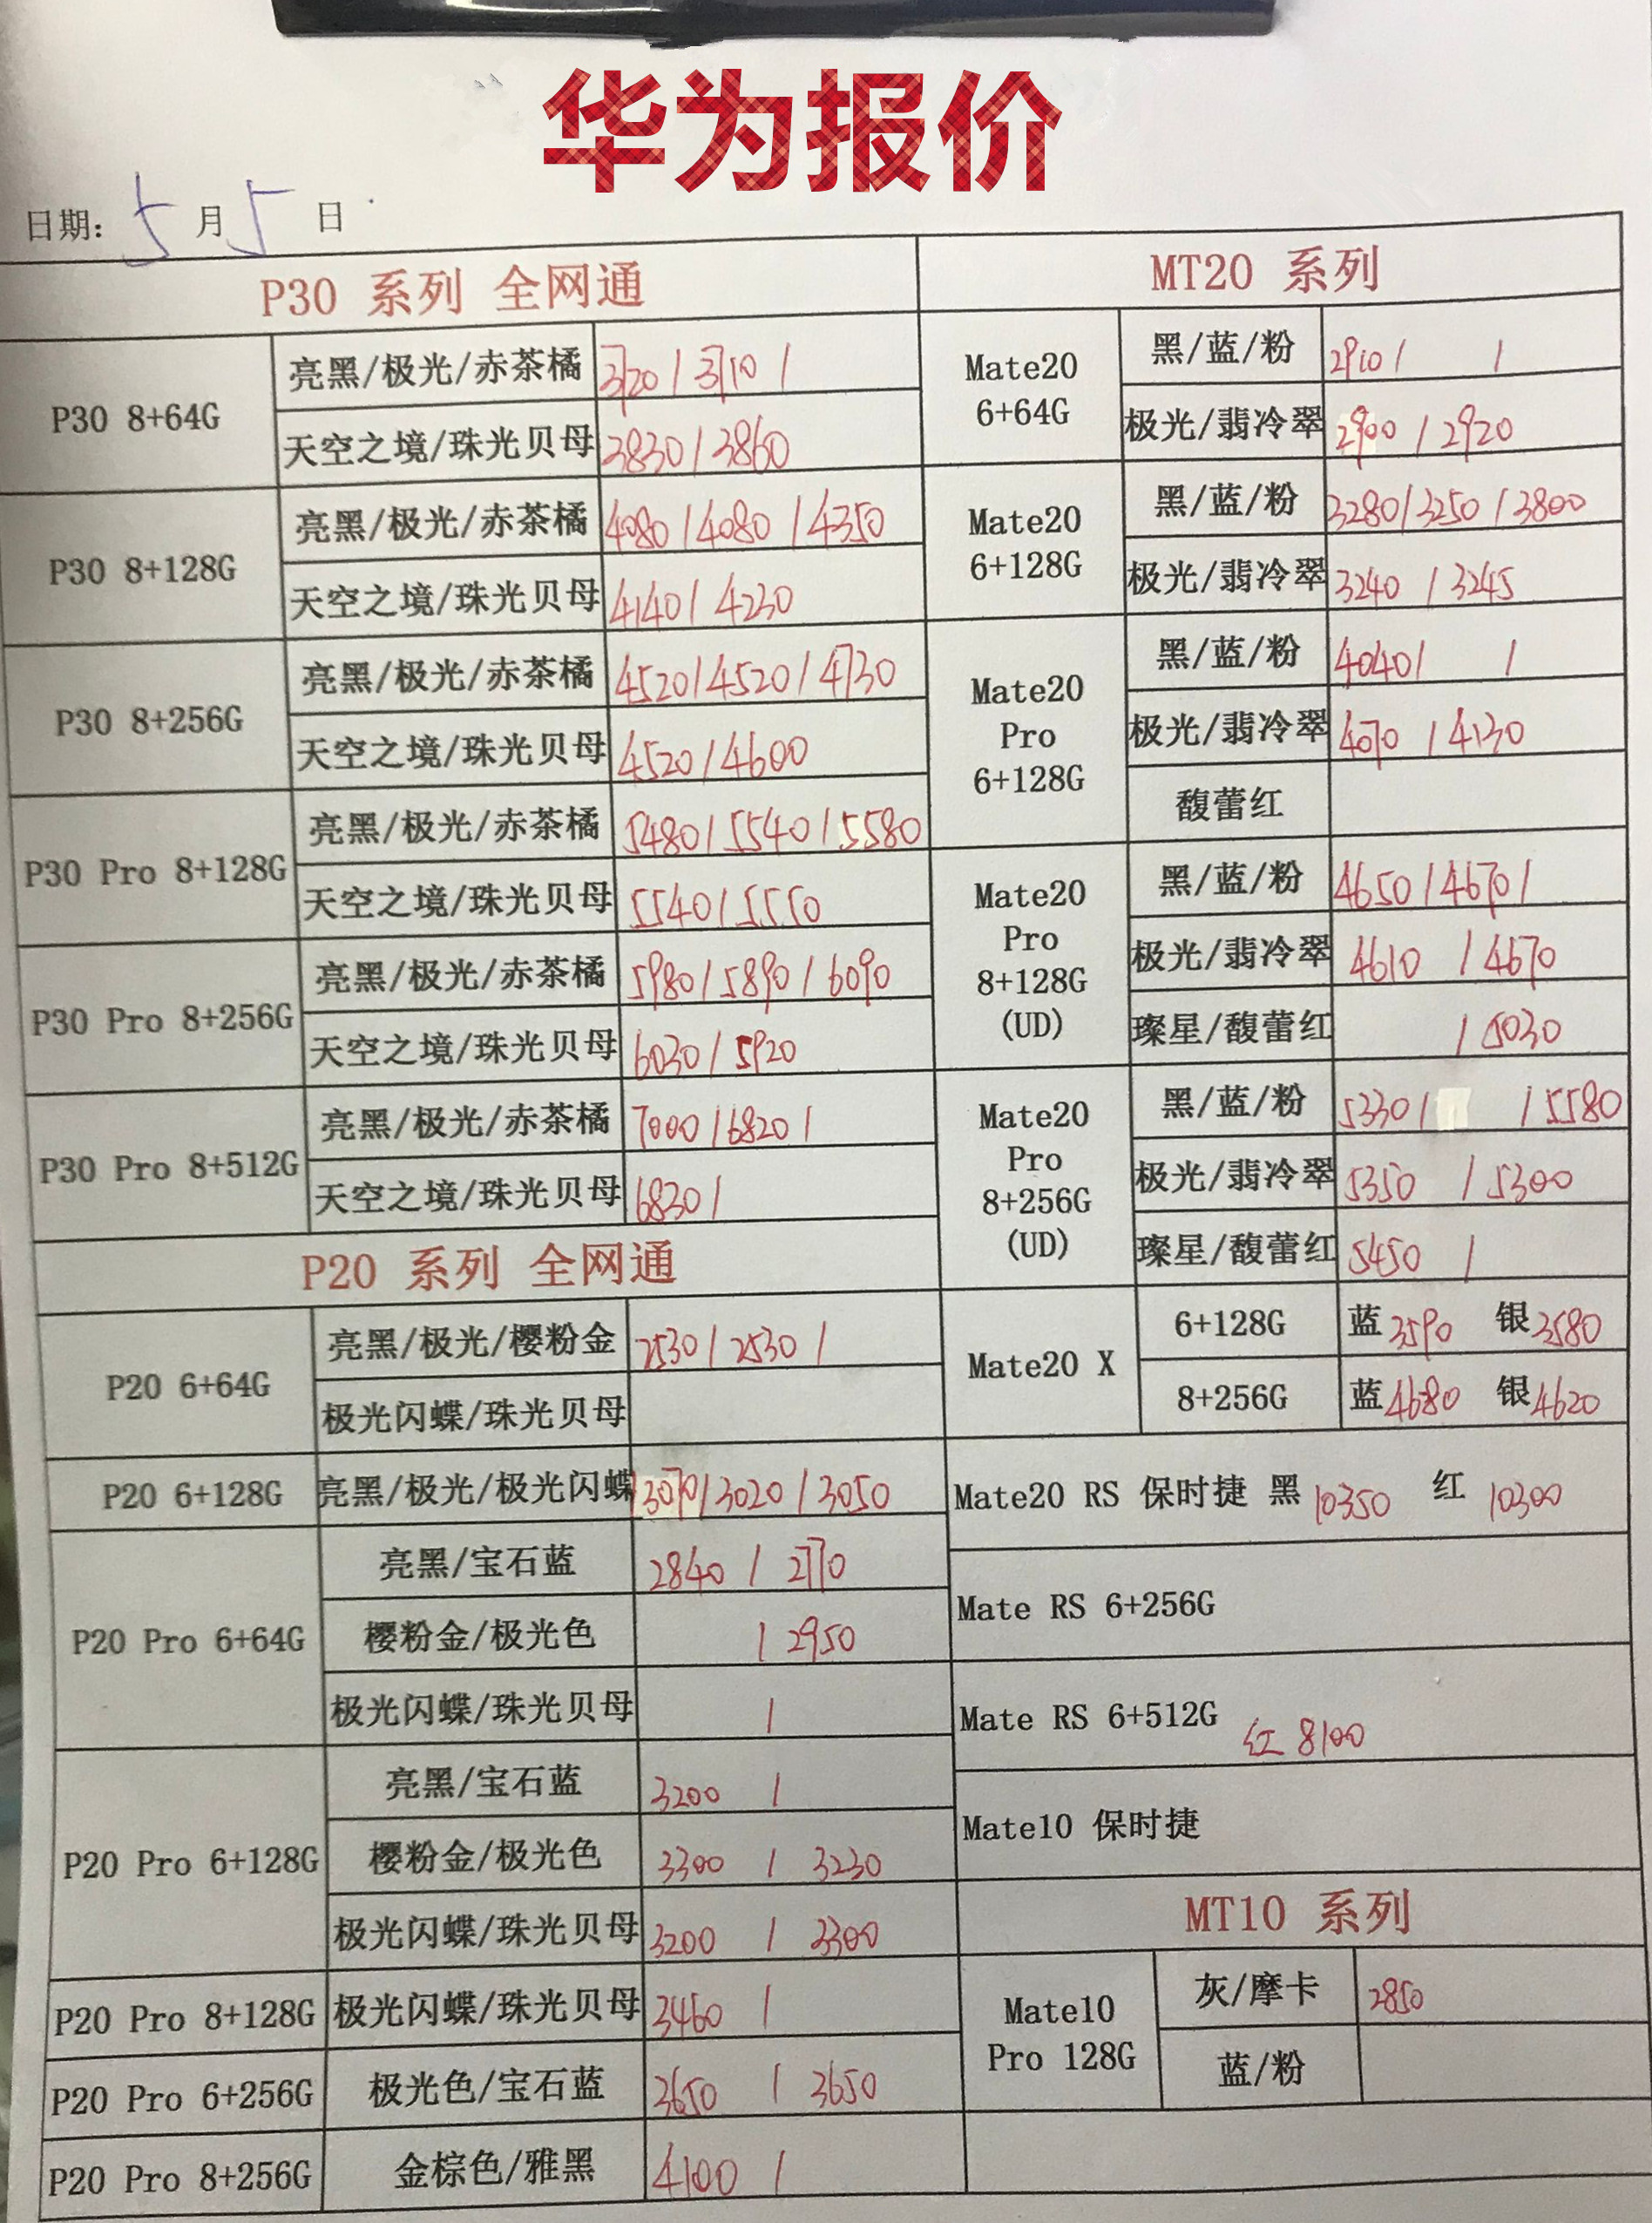 华为报价
日期: 5 月 5 日
P30 系列 全网通
P30 8+64G
亮黑/极光/赤茶橘 3720 / 3710 /
天空之境/珠光贝母 3830 / 3860
P30 8+128G
亮黑/极光/赤茶橘 4080 / 4080 / 4350
天空之境/珠光贝母 4140 / 4230
P30 8+256G
亮黑/极光/赤茶橘 4520 / 4520 / 4730
天空之境/珠光贝母 4520 / 4600
P30 Pro 8+128G
亮黑/极光/赤茶橘 5480 / 5540 / 5580
天空之境/珠光贝母 5540 / 5550
P30 Pro 8+256G
亮黑/极光/赤茶橘 5980 / 5890 / 6090
天空之境/珠光贝母 6030 / 5920
P30 Pro 8+512G
亮黑/极光/赤茶橘 7000 / 6820 /
天空之境/珠光贝母 6830 /
P20 系列 全网通
P20 6+64G
亮黑/极光/樱粉金 2530 / 2530 /
极光闪蝶/珠光贝母
P20 6+128G
亮黑/极光/极光闪蝶 3070 / 3020 / 3050
P20 Pro 6+64G
亮黑/宝石蓝 2840 / 2770
樱粉金/极光色 / 2950
极光闪蝶/珠光贝母 /
P20 Pro 6+128G
亮黑/宝石蓝 3200 /
樱粉金/极光色 3300 / 3230
极光闪蝶/珠光贝母 3200 / 3300
P20 Pro 8+128G
极光闪蝶/珠光贝母 3460 /
P20 Pro 6+256G
极光色/宝石蓝 3650 / 3650
P20 Pro 8+256G
金棕色/雅黑 4100 /
MT20 系列
Mate20
6+64G
黑/蓝/粉 2910 / /
极光/翡冷翠 2900 / 2920
Mate20
6+128G
黑/蓝/粉 3280 / 3250 / 3800
极光/翡冷翠 3240 / 3245
Mate20
Pro
6+128G
黑/蓝/粉 4040 / /
极光/翡冷翠 4070 / 4130
馥蕾红
Mate20
Pro
8+128G
(UD)
黑/蓝/粉 4650 / 4670 /
极光/翡冷翠 4610 / 4670
璨星/馥蕾红 / 5030
Mate20
Pro
8+256G
(UD)
黑/蓝/粉 5330 / / 5580
极光/翡冷翠 5350 / 5300
璨星/馥蕾红 5450 /
Mate20 X
6+128G 蓝 3590 银 3580
8+256G 蓝 4680 银 4620
Mate20 RS 保时捷 黑 10350 红 10300
Mate RS 6+256G
Mate RS 6+512G 红 8100
Mate10 保时捷
MT10 系列
Mate10
Pro 128G
灰/摩卡 2850
蓝/粉